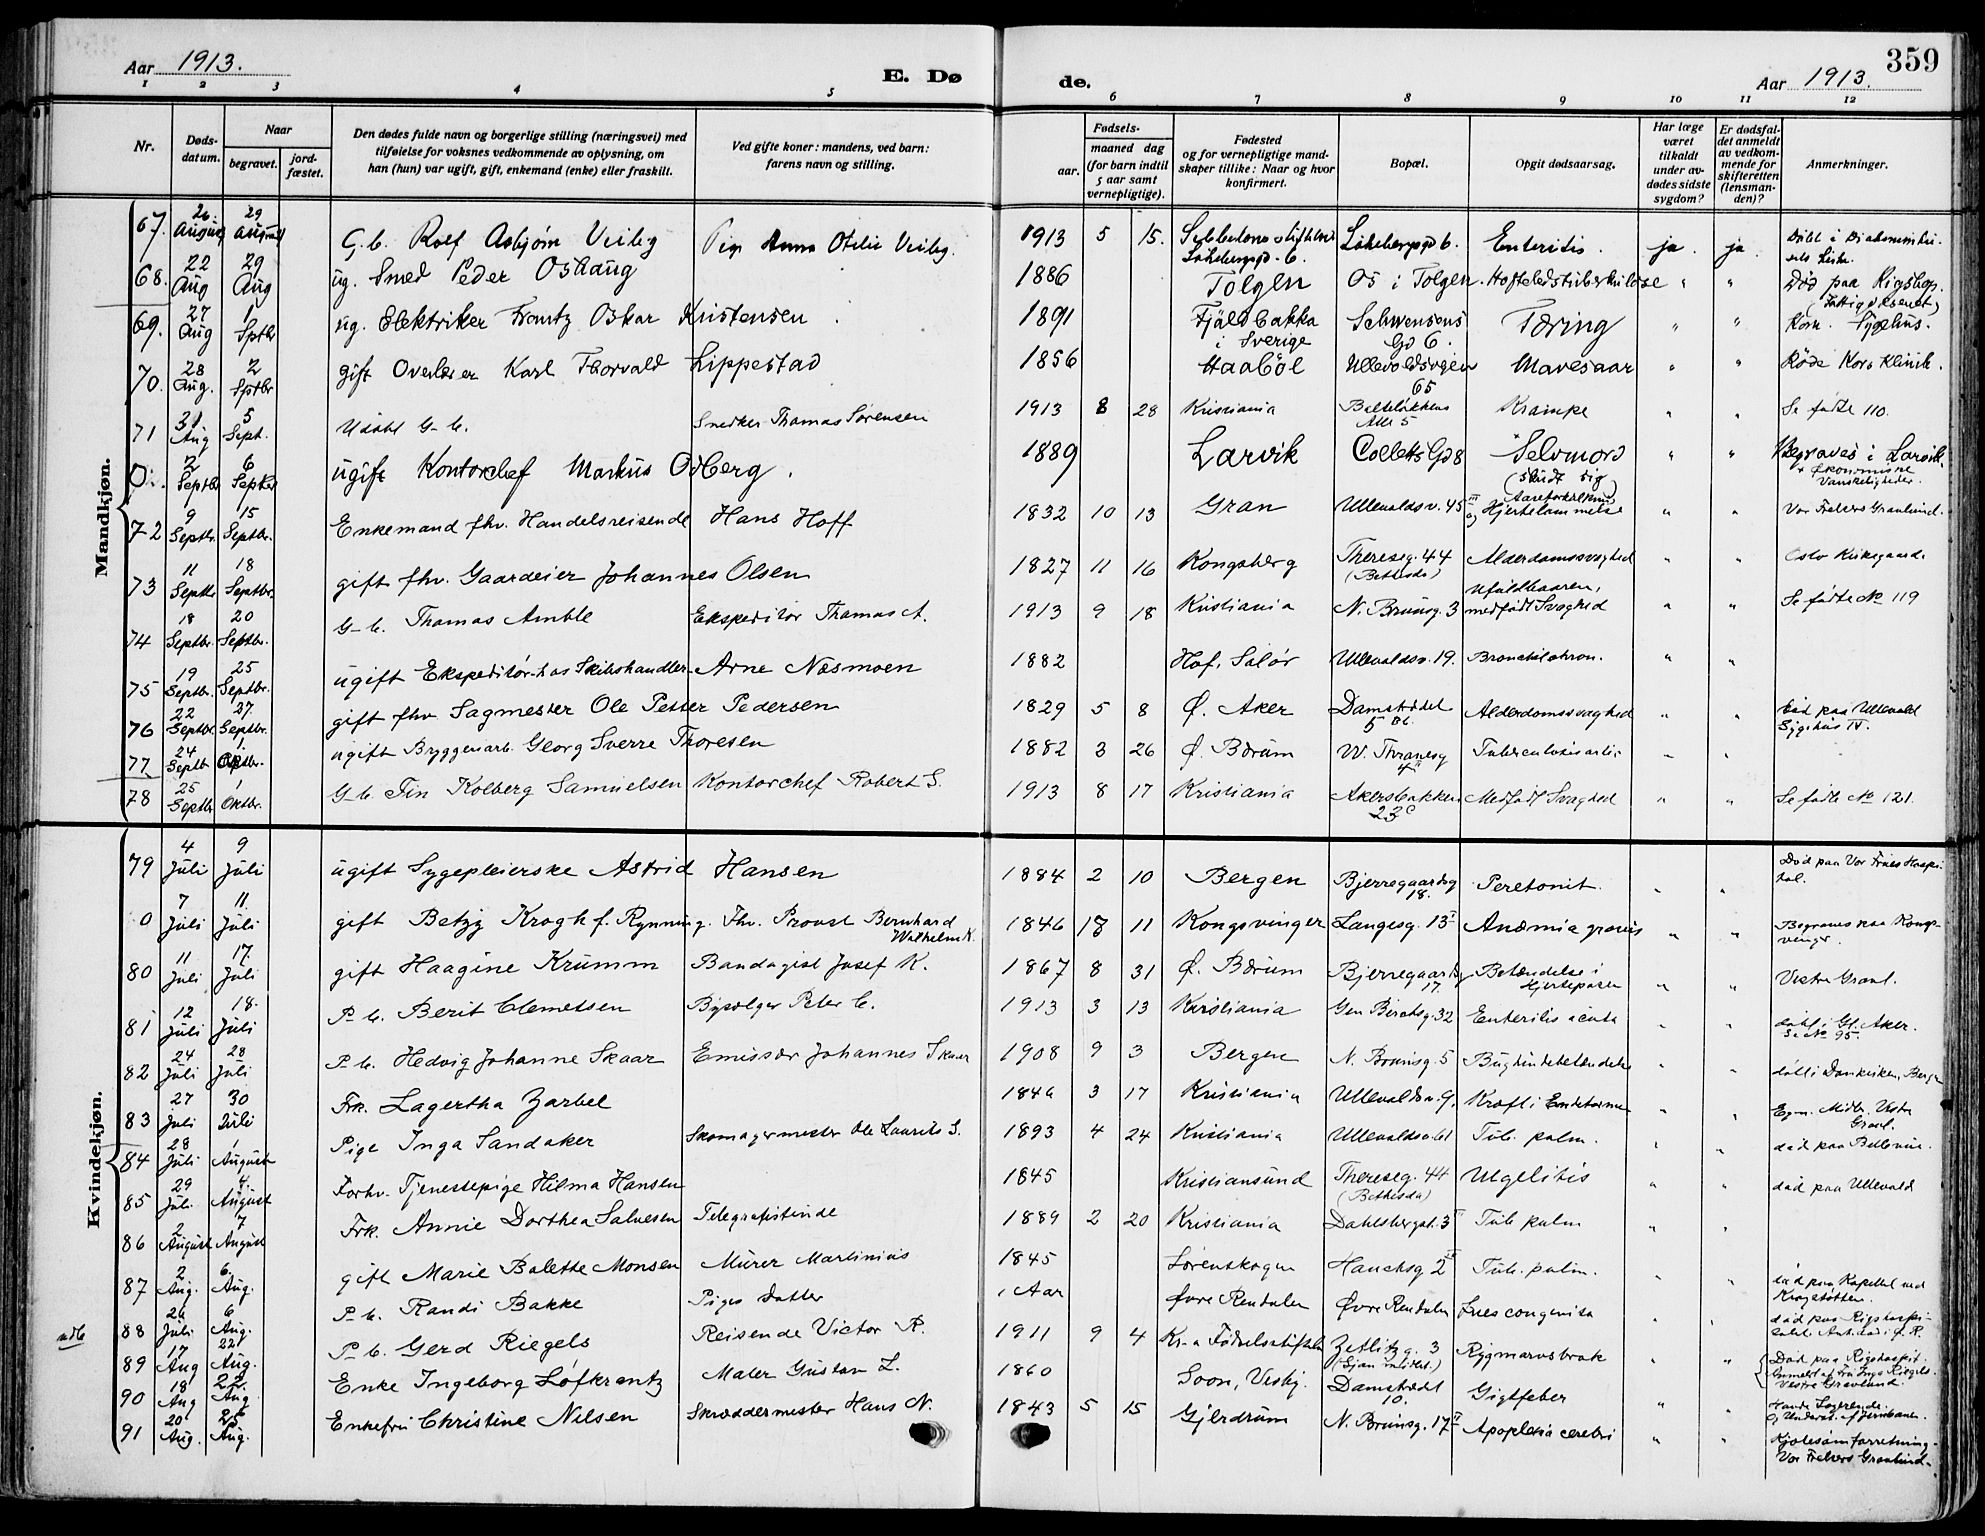 359
Aar 1913. E. Dø de. Aar 1913.
1 2 3 4 5 6 7 8 9 10 11 12
Nr. Døds-datum. Naar begravet. jord-fæstet. Den dødes fulde navn og borgerlige stilling (næringsvei) med tilføielse for voksnes vedkommende av oplysning, om han (hun) var ugift, gift, enkemand (enke) eller fraskilt. Ved gifte koner: mandens, ved barn: farens navn og stilling. Fødsels- aar. maaned dag (for barn indtil 5 aar samt vernepligtige). Fødested og for vernepligtige mand-skaper tillike: Naar og hvor konfirmert. Bopæl. Opgit dødsaarsag. Har læge været tilkaldt under av-dødes sidste sygdom? Er dødsfal-det anmeldt av vedkom-mende for skifteretten (lensman-den)? Anmerkninger.
Mandkjøn.
67. 26 August 29 August G.b. Rolf Asbjørn Veiby Pige Anna Otilie Veiby. 1913 5 15. Enteritis. ja. ja.
68. 22 Aug 29 Aug ug. Smed Peder Oshaug 1886 Tolgen Os i Tolgen. Hofteledstuberkulose " " Død paa Rigshop.
69. 27 Aug 1 Sptbr ug. Elektriker Frantz Oskar Kristensen. 1891 Fjälsbakka i Sverige Schwensens Gd 6. Tæring " " Kom. Sygehus.
70. 28 Aug. 2 Sptbr gift Overlærer Karl Thorvald Lippestad 1856 Haaböl Ullevoldsveien 65 Mavesaar " " Røde Kors Klinik.
71 31 Aug 5 Sept. Udøbt G-b. Snedker Thomas Sørensen 1913 8 28 Kristiania Balteløkkens Alle 5 Krampe " " Se fødte 110.
0. 2 Septbr 6 Septbr ugift Kontorchef Markus Odberg. 1889 Larvik Colletts Gd 8 Selvmord (skudt sig) " " Begraves i Larvik. + Økonomiske Vanskeligheder.
72 9 Septbr. 15 Septbr. Enkemand fhv. Handelsreisende Hans Hoff 1832 10 13 Gran Ullevaldsv. 45 III Aareforkalkning og Hjertelammelse " " Vor Frelsers Gravlund.
73 11 Septbr 18 Septbr. gift fhv. Gaardeier Johannes Olsen 1827 11 16 Kongsberg Thereseg. 44 (Bethesda) Alderdomssvaghed " " Oslo Kirkegaard.
74 18 Septbr. 20 Septbr. G-b. Thomas Amble Ekspeditør Thomas A. 1913 9 18 Kristiania N. Brunsg. 3 Ufuldbaaren, medfødt Svaghed " " Se fødte No 119
75 19 Septbr. 25 Septbr. ugift Ekspeditør hos Skibshandler. Arne Næsmoen 1882 Hof, Solør Ullevaldsv. 19. Bronchit chron. " "
76 22 Septbr 27. Septbr. gift fhv. Sagmester Ole Petter Pedersen 1829 5 8 Ø. Aker Damstrædet 5 Alderdomssvaghed " " død paa Ullevald Sygehus IV.
77 24 Septbr 1 ugift Byggearb. Georg Sverre Thoresen 1882 3 26 Ø. Bærum W. Thranesg 4 " "
78 25 Septbr. 1 Oktbr. G-b. Fin Kolberg Samuelsen Kontorchef Robert S. 1913 8 17 Kristiania Akersbakken 23 c Medfødt Svaghed " " Se fødte No 121.
Kvindekjøn.
79 4 Juli 9 Juli ugift Sygepleierske Astrid Hansen 1884 2 10 Bergen Bjerregaardsg 18. Peretonit. " " Død paa Vor Frues Hospital.
0 7 Juli 11. Juli gift Betzy Krogh f. Rynning. Fhv. Provst Bernhard Wilhelm K. 1846 18 11 Kongsvinger Langesg. 13 I Anæmia gravis " " Begraves paa Kongsvinger.
80 11 Juli 17. Juli gift Haagine Krumm Bandagist Josef K. 1867 8 31 Ø. Bærum Bjerregaardsg 17. Betændelse i Hjerteposen " " Vestre Gravl.
81 12 Juli 18. Juli P-b. Berit Clemetsen Bysælger Peter C. 1913 3 13 Kristiania Gen Birchsg. 32 Enteritis acuta " " døbt i Gl. Aker. Se No 95.
82 24 Juli 28 Juli P-b. Hedvig Johanne Skaar Emissær Johannes Skaar 1908 9 3 Bergen N. Brunsg. 5 Bughindebetændelse " " døbt i Domkirken, Bergen
83 27 Juli 30 Juli Frk. Lagertha Zarbel 1846 3 17 Kristiania Ullevaldsv. 9. Kræft i Endetarmen " " Egn. Midler. Vestre Gravl.
84 28 Juli 1 August Pige Inga Sandaker Skomagermester Ole Laurits S. 1893 4 24 Kristiania Ullevaldsv. 61 Tub. pulm. " " død paa Bellevue.
85 29 Juli. 4. August Forhv. Tjenestepige Hilma Hansen 1845 Kristiansund Thereseg. 44 (Bethesda) " " død paa Ullevald
86 2 August 7 August Frk. Annie Dorthea Salvesen Telegrafistinde 1889 2 20 Kristiania Dahlsbergst. 3 Tub. pulm " "
87 2 Aug. 6. Aug. gift Marie Bolette Monsen Murer Martinius 1845 Sørenskogen Hauchsg 2 Tub. pulm. " " død paa Kapellet ved Krogstøtten.
udb 88 26 Juli 6 Aug. P-b. Randi Bakke Piges Datter 1 Aar Øvre Rendalen Øvre Rendalen Lues congenita " " død paa Rigshospi-
89 17 Aug 22. Aug. P-b. Gerd Riegels Reisende Victor R. 1911 9 4 Kr-a Fødselsstiftelse Zetlitzg. 3 Rygmarvsbrok " " Død paa Rigshospit. Anmeldt af Fru Inga Riegels. Vestre Gravlund.
90 18 Aug 22. Aug Enke Ingeborg Løfkrantz Maler Gustav L. 1860 Soon, Vestby. Damstrædet 10. Gigtfeber " "
91 20 Aug. 25 Aug. Enkefru Christine Nilsen Skræddermester Hans N. 1843 5 15 Gjerdrum N. Brunsg. 17 II Apoplexia cerebri " " Kjolesømforretning. Vor Frelsers Gravlund.